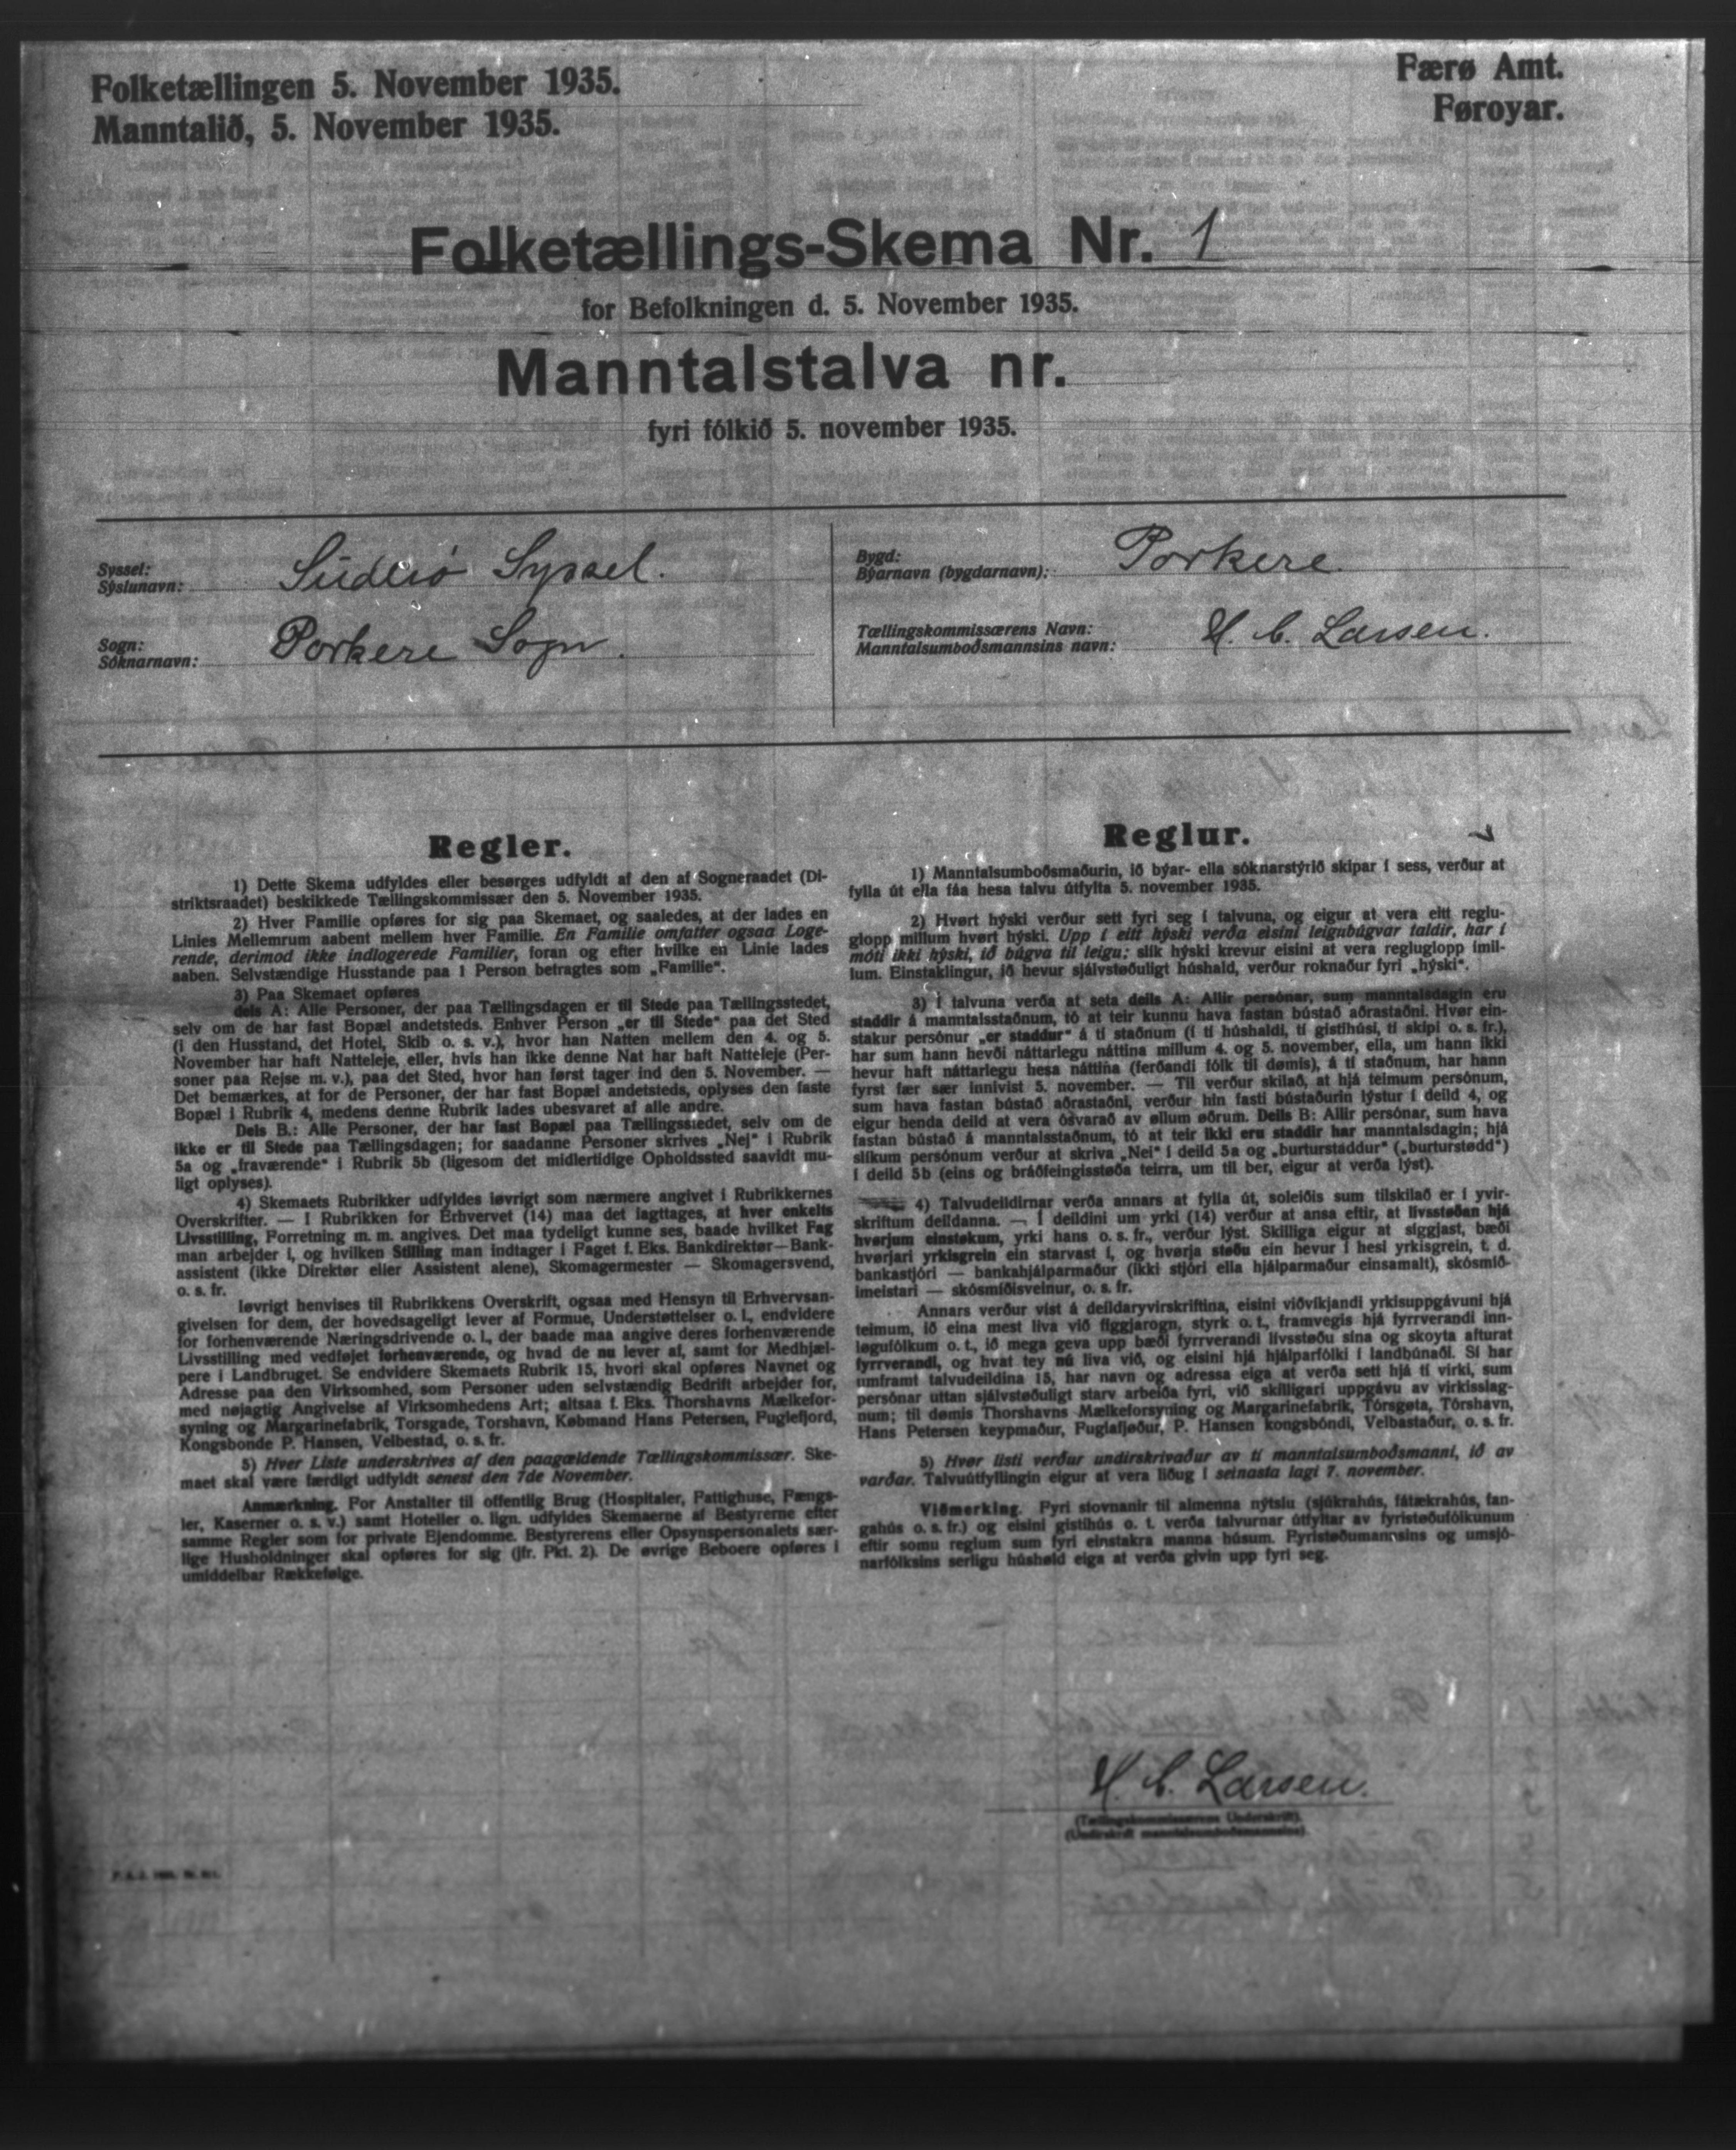 Folketællingen 5. November 1935.
Manntalið, 5. November 1935.
Færø Amt.
Føroyar.
Folketællings-Skema Nr. 1
for Befolkningen d. 5. November 1935.
Manntalstalva nr.
fyri fólkið 5. november 1935.
Syssel:
Sýslunavn:
Suderø Syssel.
Sogn:
Sóknarnavn:
Porkere Sogn.
Bygd:
Býarnavn (bygdarnavn):
Porkere.
Tællingskommissærens Navn:
Manntalsumboðsmannsins navn:
H. C. Larsen.
Regler.
1) Dette Skema udfyldes eller besørges udfyldt af den af Sogneraadet (Di-
striktsraadet) beskikkede Tællingskommissær den 5. November 1935.
2) Hver Familie opføres for sig paa Skemaet, og saaledes, at der lades en
Linies Mellemrum aabent mellem hver Familie. En Familie omfatter ogsaa Loge-
rende, derimod ikke indlogerede Familier, foran og efter hvilke en Linie lades
aaben. Selvstændige Husstande paa 1 Person betragtes som „Familie“.
3) Paa Skemaet opføres
dels A: Alle Personer, der paa Tællingsdagen er til Stede paa Tællingsstedet,
selv om de har fast Bopæl andetsteds. Enhver Person „er til Stede“ paa det Sted
(i den Husstand, det Hotel, Skib o. s. v.), hvor han Natten mellem den 4. og 5.
November har haft Natteleje, eller, hvis han ikke denne Nat har haft Natteleje (Per-
soner paa Rejse m. v.), paa det Sted, hvor han først tager ind den 5. November. —
Det bemærkes, at for de Personer, der har fast Bopæl andetsteds, oplyses den faste
Bopæl i Rubrik 4, medens denne Rubrik lades ubesvaret af alle andre.
Dels B.: Alle Personer, der har fast Bopæl paa Tællingsstedet, selv om de
ikke er til Stede paa Tællingsdagen; for saadanne Personer skrives „Nej“ i Rubrik
5a og „fraværende“ i Rubrik 5b (ligesom det midlertidige Opholdssted saavidt mu-
ligt oplyses).
4) Skemaets Rubrikker udfyldes iøvrigt som nærmere angivet i Rubrikkernes
Overskrifter. — I Rubrikken for Erhvervet (14) maa det iagttages, at hver enkelts
Livsstilling, Forretning m. m. angives. Det maa tydeligt kunne ses, baade hvilket Fag
man arbejder i, og hvilken Stilling man indtager i Faget f. Eks. Bankdirektør—Bank-
assistent (ikke Direktør eller Assistent alene), Skomagermester — Skomagersvend,
o. s. fr.
Iøvrigt henvises til Rubrikkens Overskrift, ogsaa med Hensyn til Erhvervsan-
givelsen for dem, der hovedsageligt lever af Formue, Understøttelser o. l., endvidere
for forhenværende Næringsdrivende o. l., der baade maa angive deres forhenværende
Livsstilling med vedføjet forhenværende, og hvad de nu lever af, samt for Medhjæl-
pere i Landbruget. Se endvidere Skemaets Rubrik 15, hvori skal opføres Navnet og
Adresse paa den Virksomhed, som Personer uden selvstændig Bedrift arbejder for,
med nøjagtig Angivelse af Virksomhedens Art; altsaa f. Eks. Thorshavns Mælkefor-
syning og Margarinefabrik, Torsgade, Torshavn, Købmand Hans Petersen, Fuglefjord,
Kongsbonde P. Hansen, Velbestad, o. s. fr.
5) Hver Liste underskrives af den paagældende Tællingskommissær. Ske-
maet skal være færdigt udfyldt senest den 7de November.
Anmærkning. For Anstalter til offentlig Brug (Hospitaler, Fattighuse, Fængs-
ler, Kaserner o. s. v.) samt Hoteller o. lign. udfyldes Skemaerne af Bestyrerne efter
samme Regler som for private Ejendomme. Bestyrerens eller Opsynspersonalets sær-
lige Husholdninger skal opføres for sig (jfr. Pkt. 2). De øvrige Beboere opføres i
umiddelbar Rækkefølge.
Reglur.
1) Manntalsumboðsmaðurin, ið býar- ella sóknarstýrið skipar í sess, verður at
fylla út ella fáa hesa talvu útfylta 5. november 1935.
2) Hvørt hýski verður sett fyri seg í talvuna, og eigur at vera eitt reglu-
glopp millum hvørt hýski. Upp í eitt hýski verða eisini leigubúgvar taldir, har í
móti ikki hýski, ið búgva til leigu; slík hýski krevur eisini at vera regluglopp ímil-
lum. Einstaklingur, ið hevur sjálvstøðuligt húshald, verður roknaður fyri „hýski“.
3) Í talvuna verða at seta deils A: Allir persónar, sum manntalsdagin eru
staddir á manntalsstaðnum, tó at teir kunnu hava fastan bústað aðrastaðni. Hvør ein-
stakur persónur „er staddur“ á tí staðnum (í tí húshaldi, tí gistihúsi, tí skipi o. s. fr.),
har sum hann hevði náttarlegu náttina millum 4. og 5. november, ella, um hann ikki
hevur haft náttarlegu hesa náttina (ferðandi fólk til dømis), á tí staðnum, har hann
fyrst fær sær innivist 5. november. — Til verður skilað, at hjá teimum persónum,
sum hava fastan bústað aðrastaðni, verður hin fasti bústaðurin lýstur í deild 4, og
eigur henda deild at vera ósvarað av øllum øðrum. Deils B: Allir persónar, sum hava
fastan bústað á manntalsstaðnum, tó at teir ikki eru staddir har manntalsdagin; hjá
slíkum persónum verður at skriva „Nei“ í deild 5a og „burturstaddur“ („burturstødd“)
í deild 5b (eins og bráðfeingisstøða teirra, um til ber, eigur at verða lýst).
4) Talvudeildirnar verða annars at fylla út, soleiðis sum tilskilað er í yvir-
skriftum deildanna. — Í deildini um yrki (14) verður at ansa eftir, at livsstøðan hjá
hvørjum einstøkum, yrki hans o. s. fr., verður lýst. Skilliga eigur at siggjast, bæði
hvørjari yrkisgrein ein starvast í, og hvørja støðu ein hevur í hesi yrkisgrein, t. d.
bankastjóri — bankahjálparmaður (ikki stjóri ella hjálparmaður einsamalt), skósmíð-
imeistari — skósmíðisveinur, o. s. fr.
Annars verður víst á deildaryvirskriftina, eisini viðvíkjandi yrkisuppgávuni hjá
teimum, ið eina mest liva við figgjarogn, styrk o. t., framvegis hjá fyrrverandi inn-
løgufólkum o. t., ið mega geva upp bæði fyrrverandi livsstøðu sína og skoyta afturat
fyrrverandi, og hvat tey nú liva við, og eisini hjá hjálparfólki í landbúnaði. Sí har
umframt talvudeildina 15, har navn og adressa eiga at verða sett hjá tí virki, sum
persónar uttan sjálvstøðuligt starv arbeiða fyri, við skilligari uppgávu av virkisslag-
num; til dømis Thorshavns Mælkeforsyning og Margarinefabrik, Tórsgøta, Tórshavn,
Hans Petersen keypmaður, Fuglafjøður, P. Hansen kongsbóndi, Velbastaður, o. s. fr.
5) Hvør listi verður undirskrivaður av tí manntalsumboðsmanni, ið av
varðar. Talvuútfyllingin eigur at vera liðug í seinasta lagi 7. november.
Viðmerking. Fyri stovnanir til almenna nýtslu (sjúkrahús, fátækrahús, fan-
gahús o. s. fr.) og eisini gistihús o. t. verða talvurnar útfyltar av fyristøðufólkunum
eftir somu reglum sum fyri einstakra manna húsum. Fyristøðumannsins og umsjó-
narfólksins serligu húshald eiga at verða givin upp fyri seg.
H. C. Larsen.
(Tællingskommissærens Underskrift).
(Undirskrift manntalsumboðsmannsins)